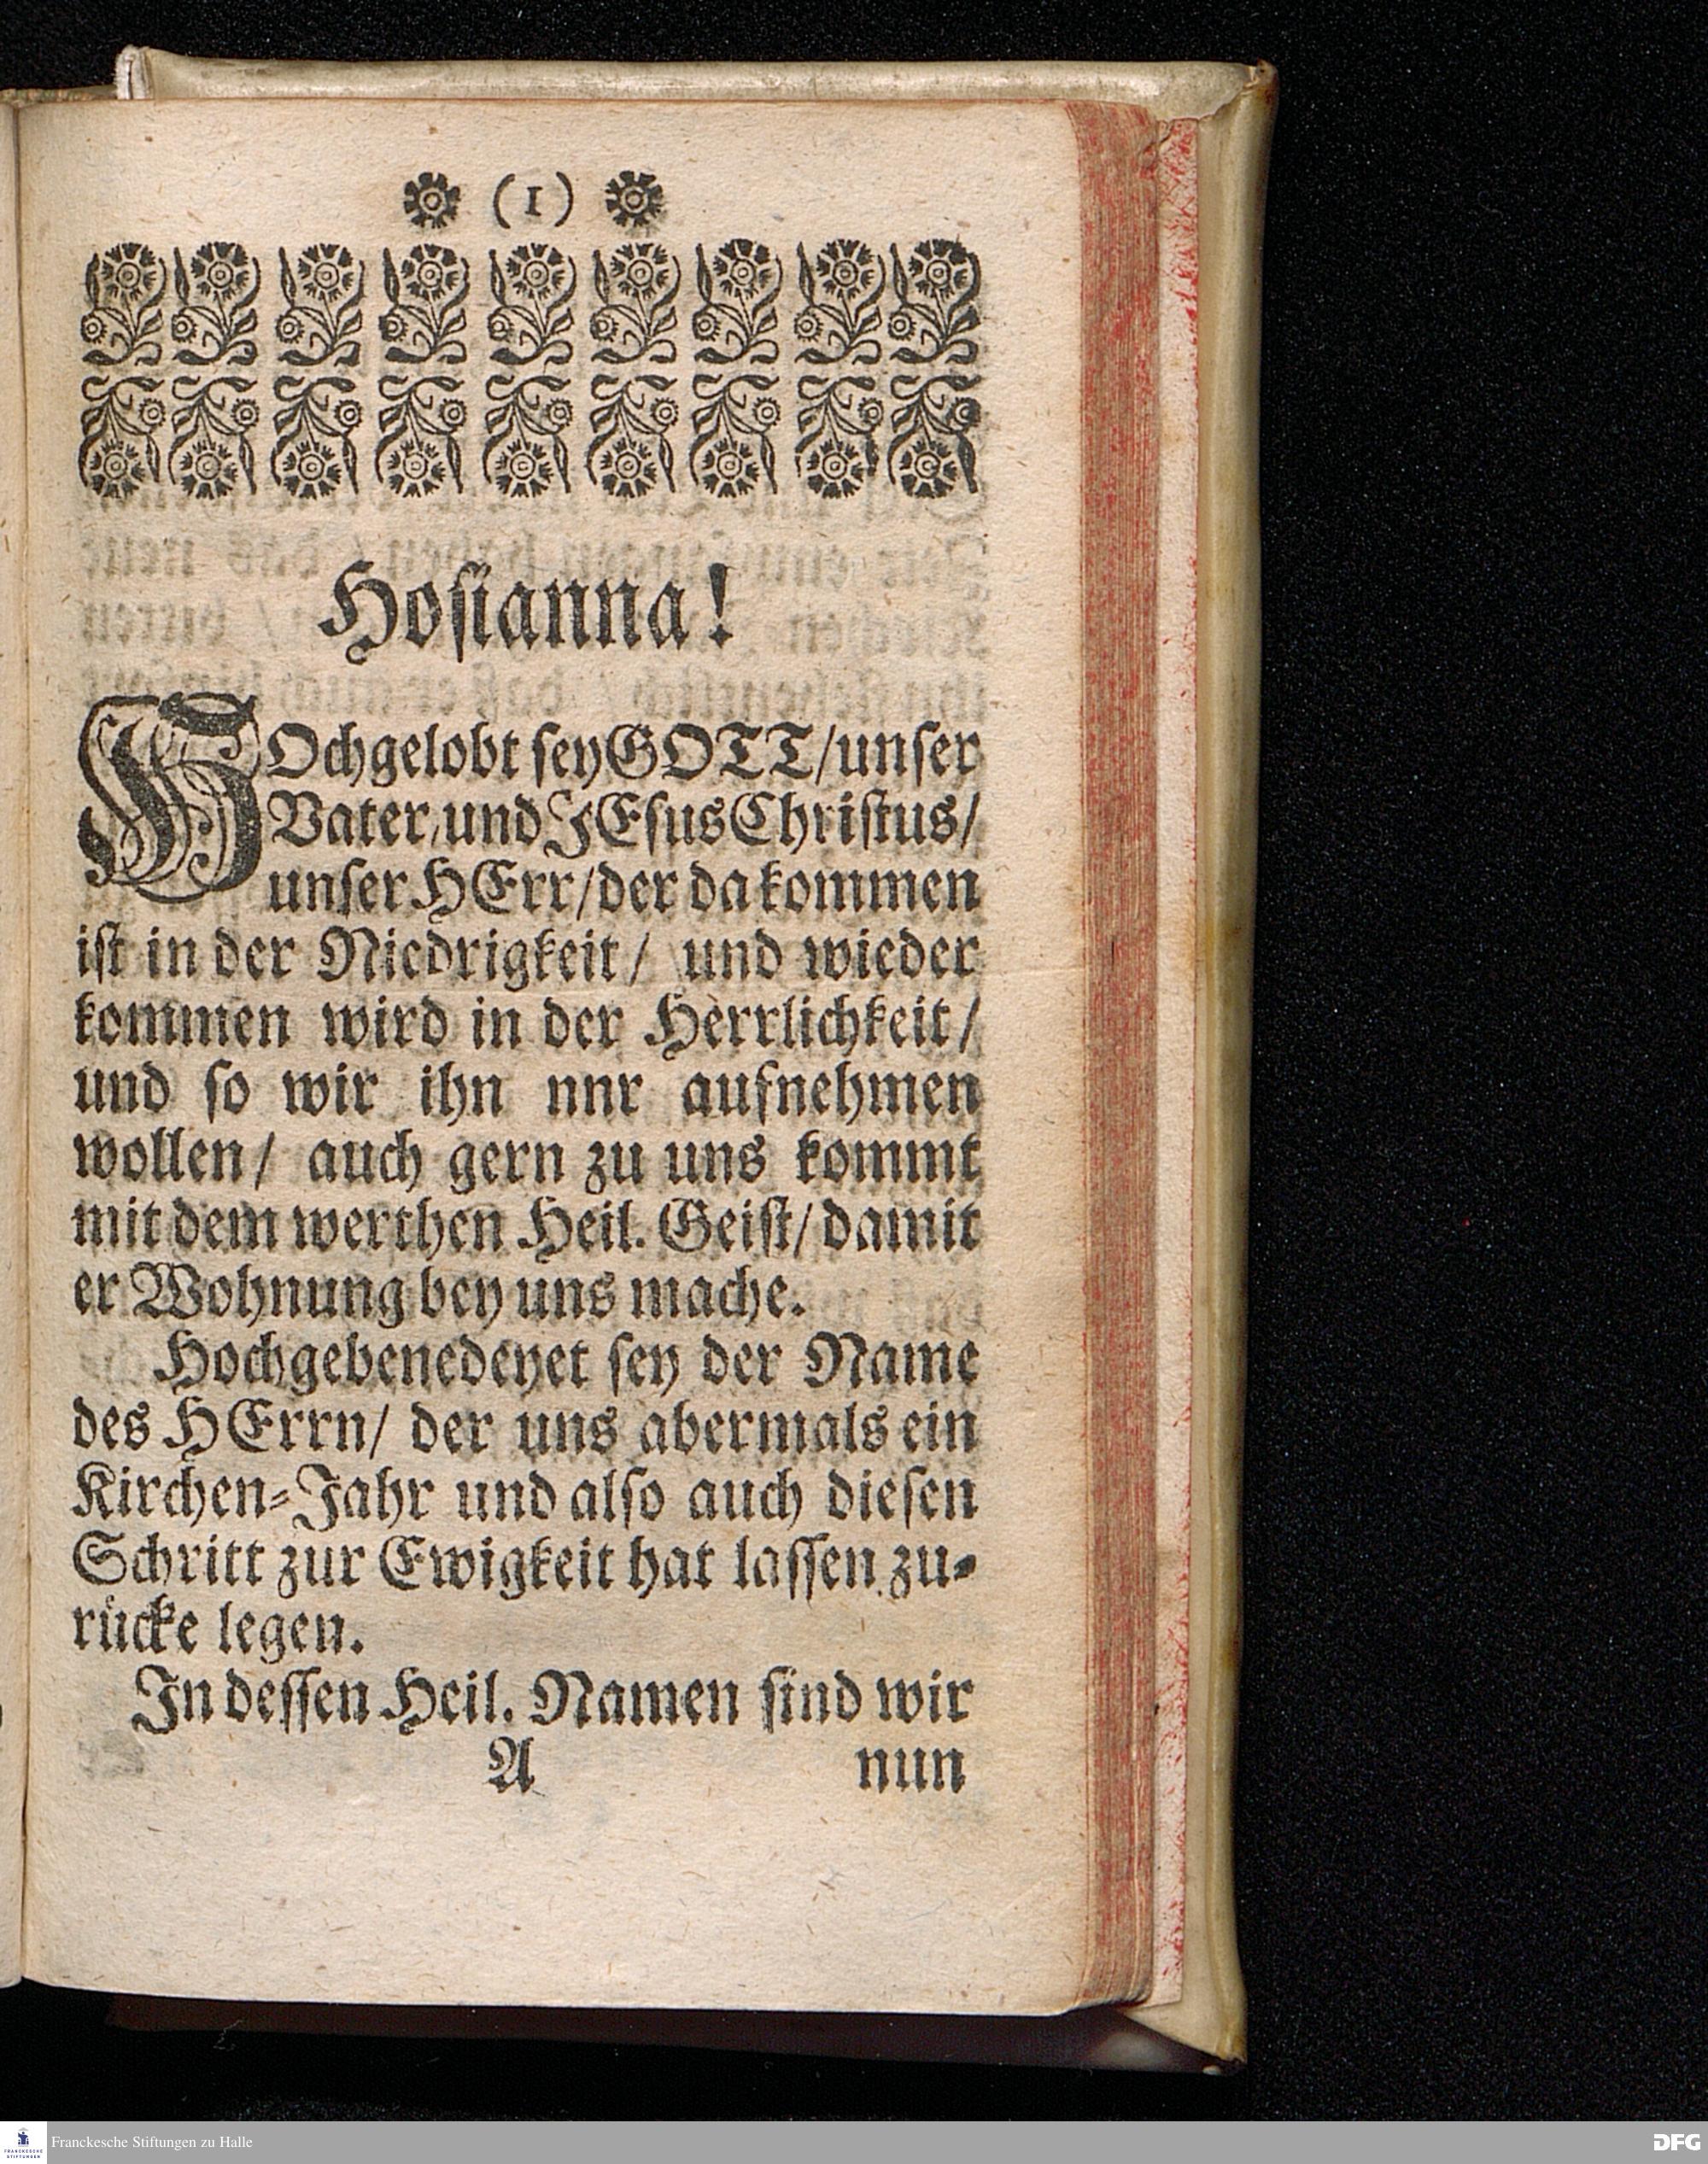 (1)
Hosianna!
HOchgelobt sey GOTT/unser
Vater, und JEsus Christus/
unser HErr/der da kommen
ist in der Niedrigkeit/ und wieder
kommen wird in der Herrlichkeit/
und so wir ihn nnr aufnehmen
wollen/ auch gern zu uns kommt
mit dem werthen Heil. Geist/ damit
er Wohnung bey uns mache.
Hochgebenedeyet sey der Name
des HErrn/ der uns abermals ein
Kirchen-Jahr und also auch diesen
Schritt zur Ewigkeit hat lassen zu-
rücke legen.
In dessen Heil. Namen sind wir
A nun
FRANCKESCHE STIFTUNGEN
Franckesche Stiftungen zu Halle
DFG